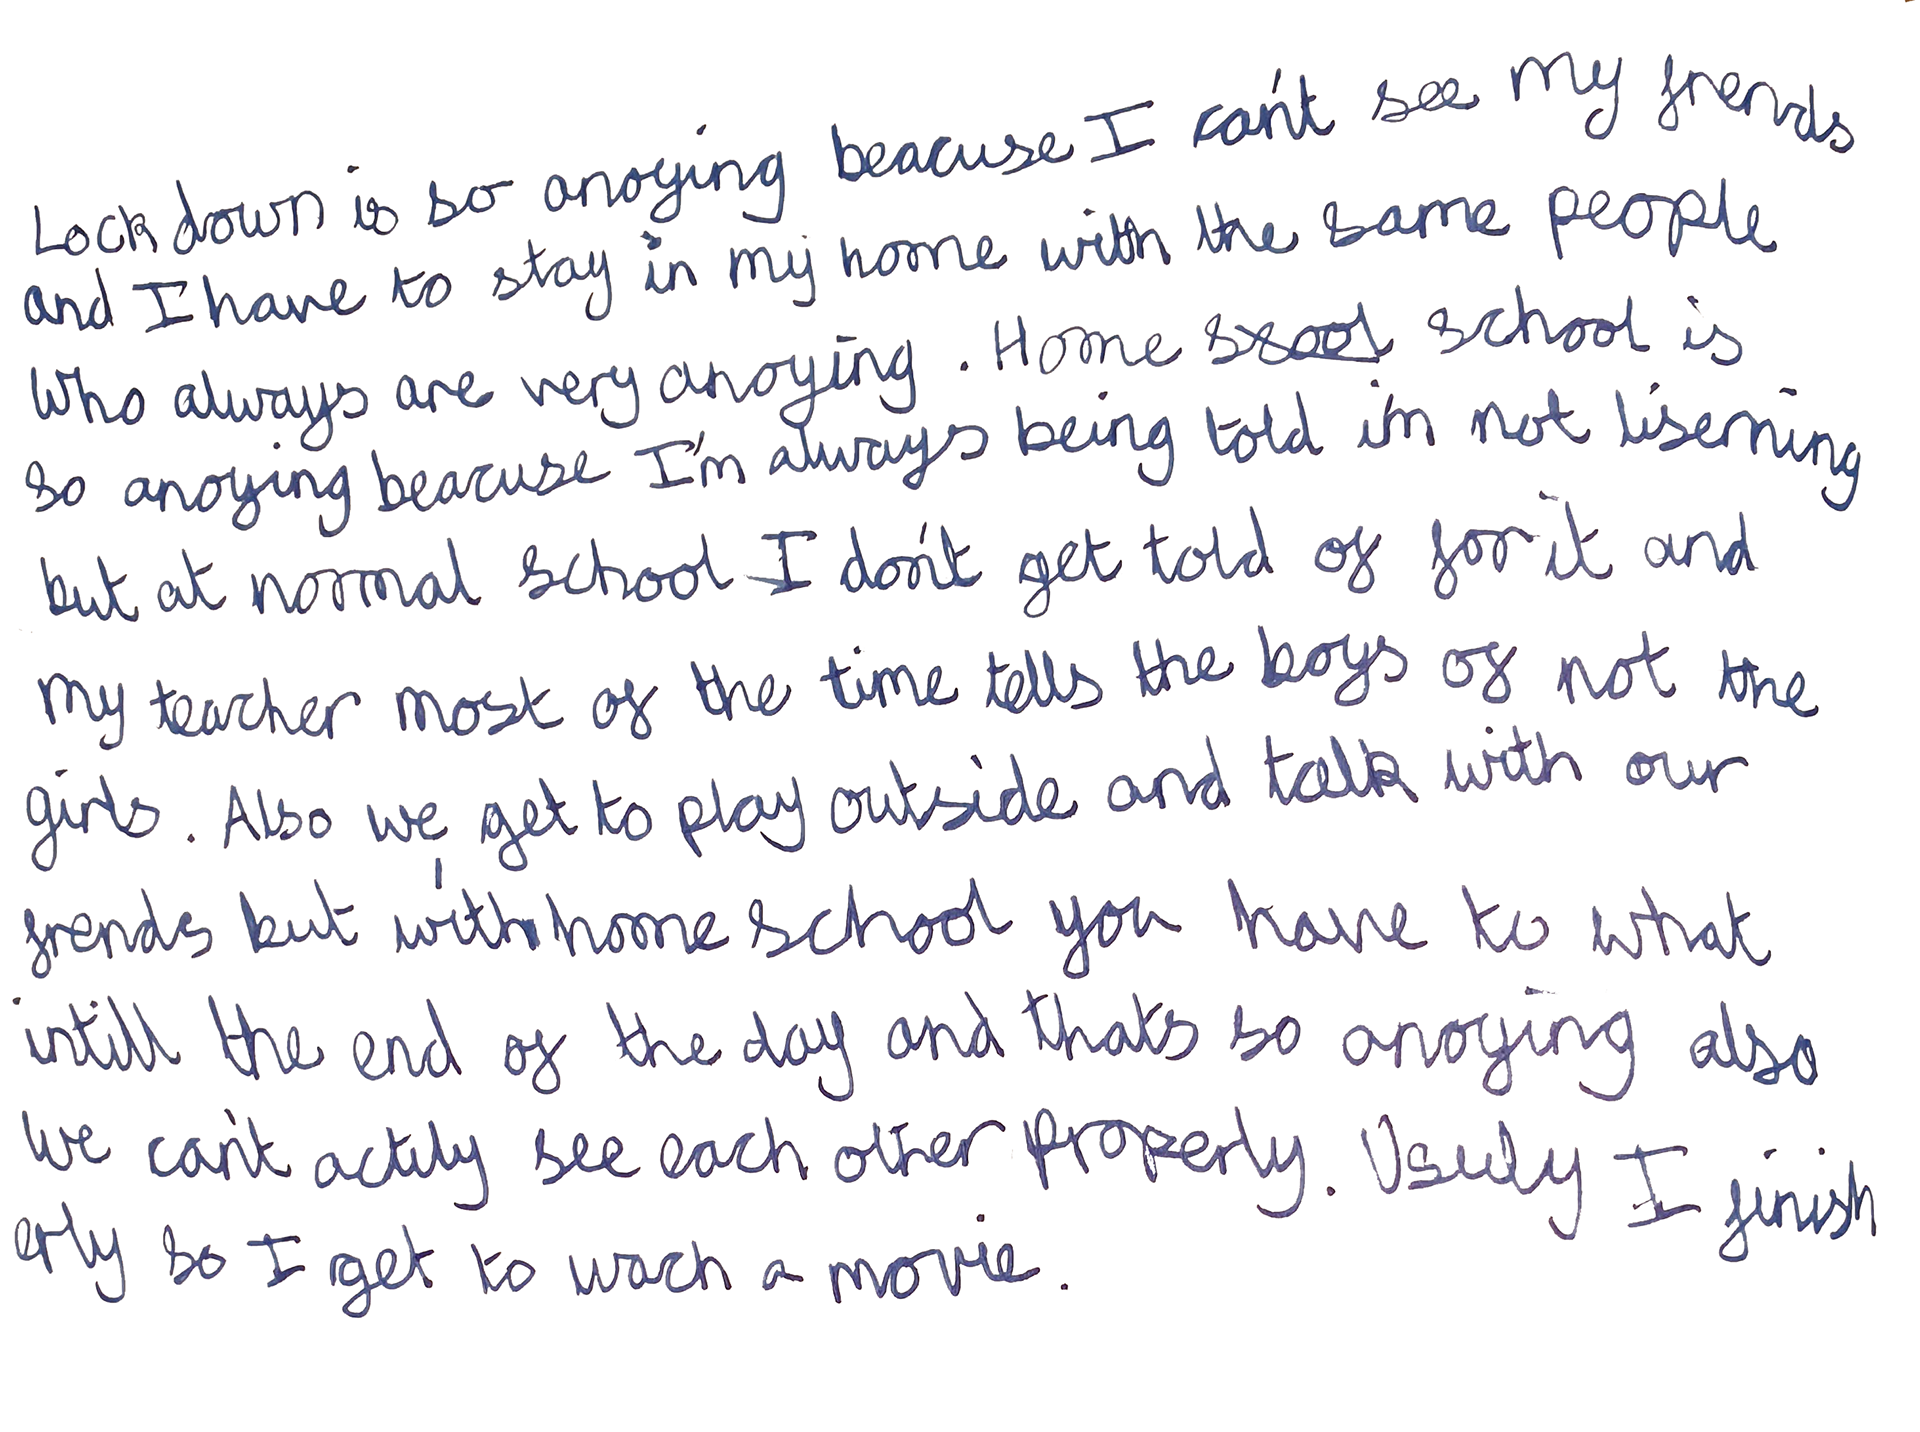 Lockdown is so anoying beacuse I can't see my frends
and I have to stay in my home with the same people
who always are very anoying. Home school is
so anoying beacuse I'm always being told i'm not liserning
but at normal school I don't get told of for it and
my teacher most of the time tells the boys of not the
girls. Also we get to play outside and talk with our
frends but with home school you have to what
intill the end of the day and thats so anoying also
we can't actily see each other properly. Usuly I finish
erly so I get to wach a movie.